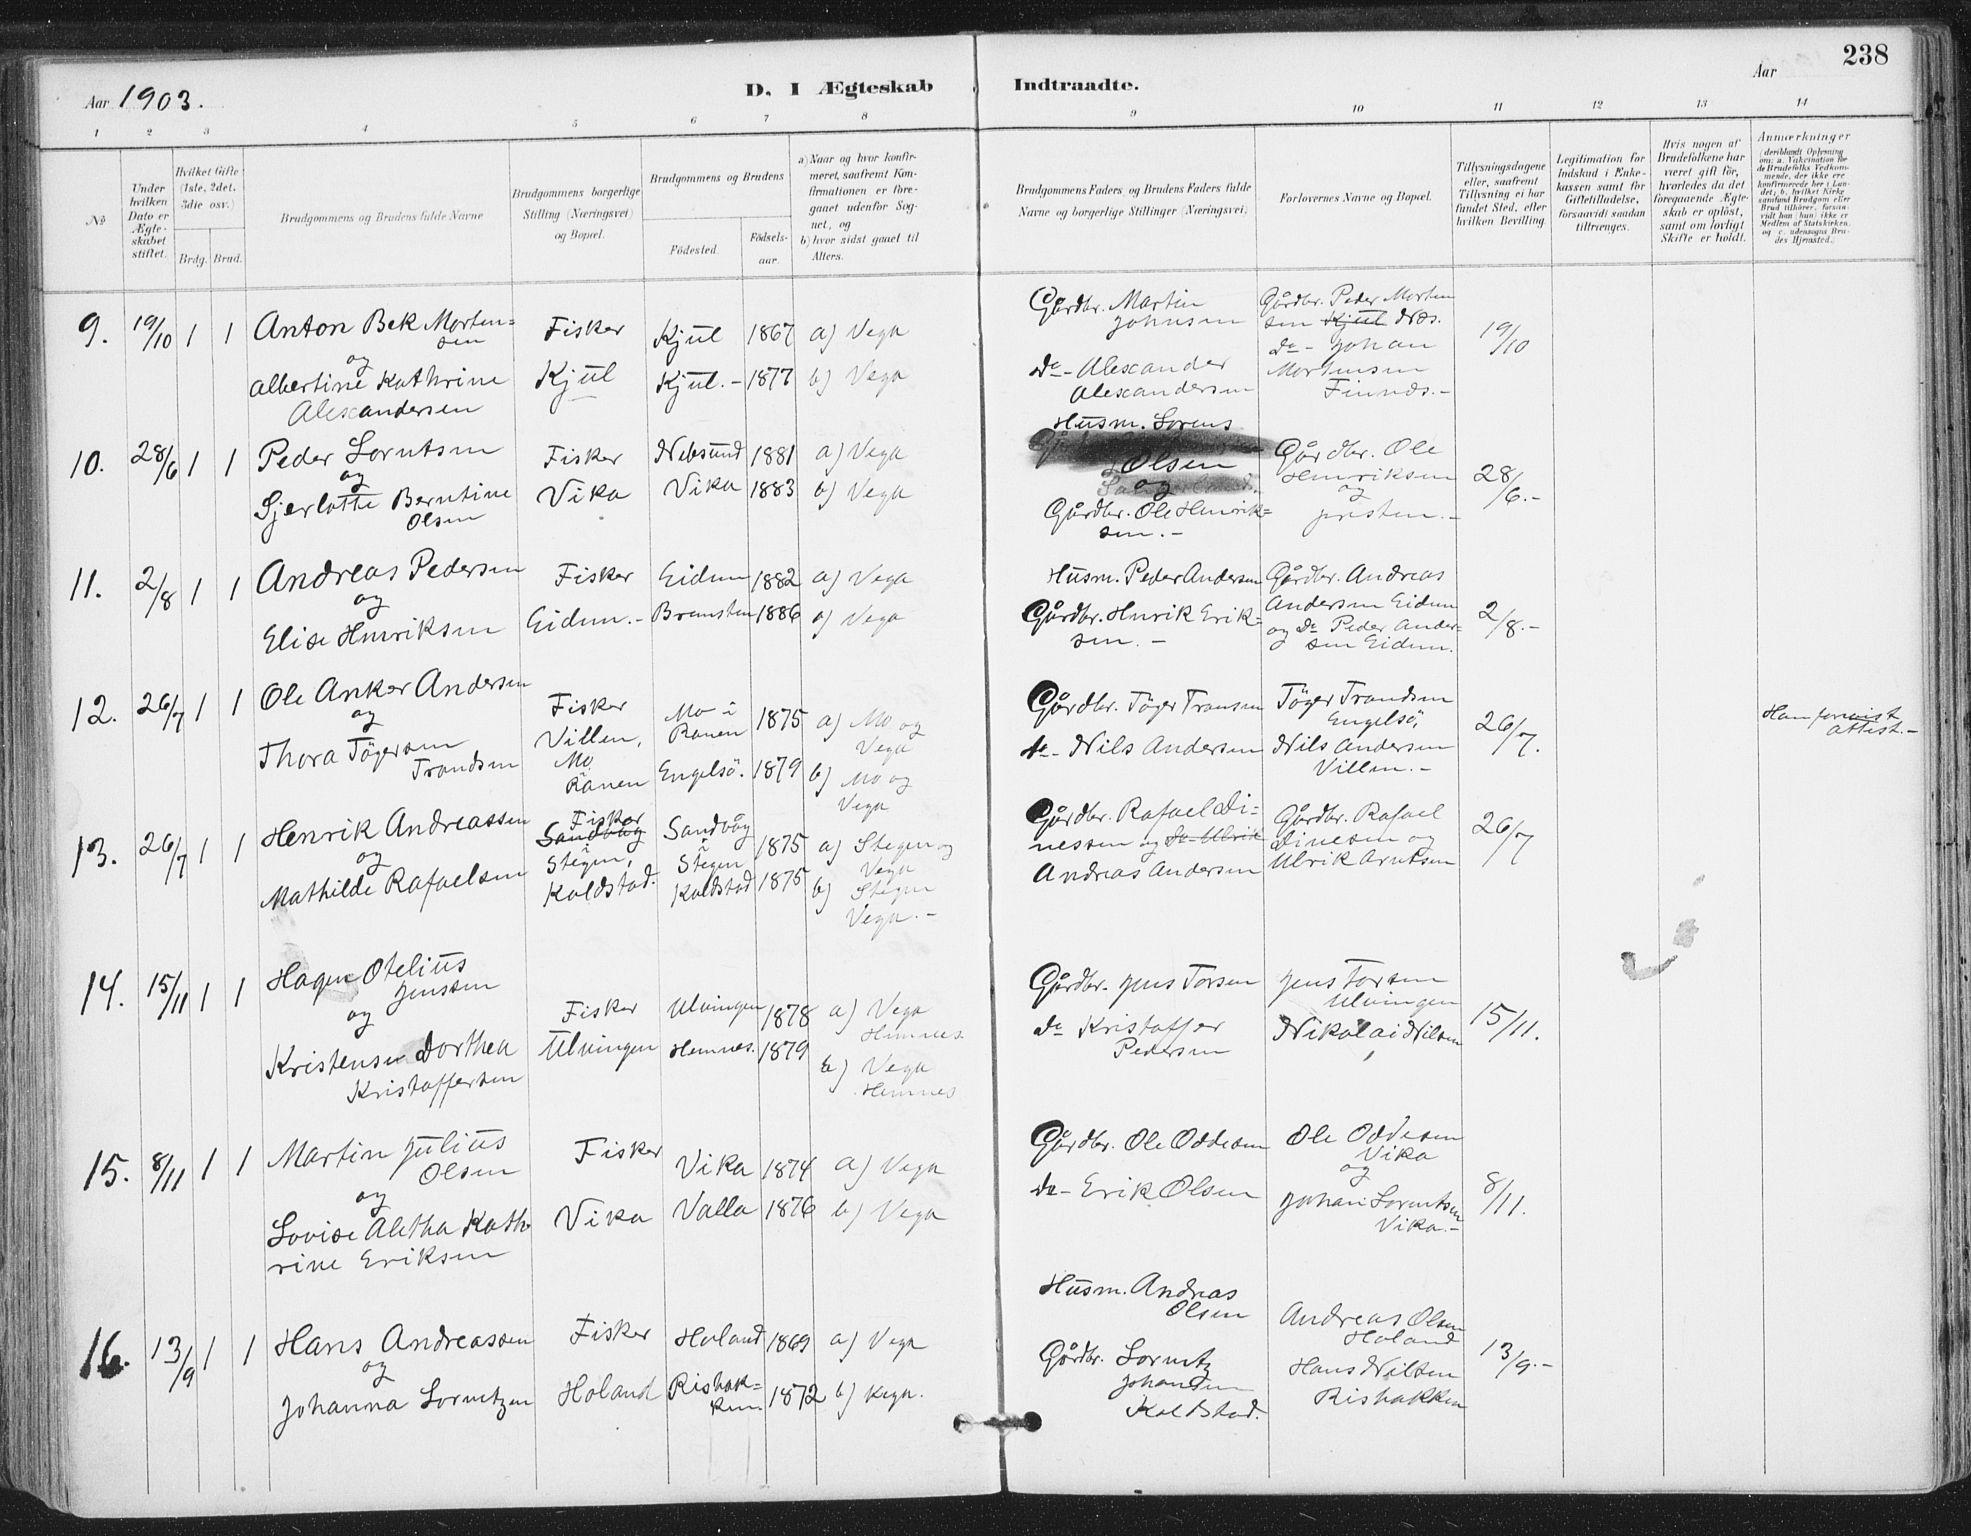 238
Aar 1903.
D. I Ægteskab Indtraadte.
Aar
1 2 3 4 5 6 7 8 9 10 11 12 13 14
№
Under hvilken Dato er Ægteskabet stiftet.
Hvilket Gifte (1ste, 2det, 3die osv.)
Brdg. Brud.
Brudgommens og Brudens fulde Navne
Brudgommens borgerlige Stilling (Næringsvei) og Bopæl.
Brudgommens og Brudens
Födested.
Födsels-aar.
a) Naar og hvor konfirmeret, saafremt Konfirmationen er foregaaet udenfor Sognet, og
b) hvor sidst gaaet til Alters.
Brudgommens Faders og Brudens Faders fulde Navne og borgerlige Stillinger (Næringsvei)
Forlovernes Navne og Bopæl.
Tillysningsdagene eller, saafremt Tillysning ei har fundet Sted, efter hvilken Bevilling
Legitimation for Indskud i Enkekassen samt for Giftetilladelse, forsaavidt saadan tiltrænges.
Hvis nogen af Brudefolkene har været gift för, hvorledes da det foregaaende Ægteskab er oplöst, samt om lovligt Skifte er holdt.
Anmærkninger (deriblandt Oplysning om: a. Vakcination for de Brudefolks Vedkommende, der ikke ere konfirmerede her i Landet; b. hvilket Kirkesamfund Brudgom eller Brud tilhörer, forsaavidt han (hun) ikke er Medlem af Statskirken, og c. udensogns Brudes Hjemsted.)
9. 19/10 1 1 Anton Bek Morten=
sen
og
Albertine Kathrine
Alexandersen
Fisker
Kjul
Kjul 1867
Kjul.- 1877
a) Vega
b) Vega
Gårdbr. Martin
Johnsen
Do- Alexander
Alexandersen
Gårdbr. Peder Morten
sen Kjul Næs.
Do- Johan
Mortensen
Finnæs.-
19/10
10. 28/6 1 1 Peder Lorntsen
og
Sjerlotte Berntine
Olsen
Fisker
Vika
Nebsund 1881
Vika 1883
a) Vega
b) Vega
Husm. Lorens
Olsen
og
Gårdbr. Ole Henrik=
sen.-
Gårdbr. Ole
Henriksen
og
presten.-
28/6.-
11. 2/8 1 1 Andreas Pedersen
og
Elise Henriksen
Fisker
Eidem.-
Eidem 1882
Bremsten 1886
a) Vega
b) Vega
Husm. Peder Andersen
Gårdbr. Henrik Erik=
sen.-
Gårdbr. Andreas
Andersen Eidem
og Do Peder Ander=
sen Eidem.
2/8.-
12. 26/7 1 1 Ole Anker Andersen
og
Thora Tögersen
Trandsen
Fisker
Villen,
Mo
Ranen
Mo i
Ranen 1875
Engelsö. 1879
a) Mo og
Vega
b) Mo og
Vega
Gårdbr. Töger Transen
do- Nils Andersen
Töger Trandsen
Engelsö,
Nils Andersen
Villen.-
26/7.
attest.-
13. 26/7 1 1 Henrik Andreassen
og
Mathilde Rafaelsen
Fisker
Sandvåg
Stegen,
Koldstad.
Sandvåg
i
Stegen 1875
Koldstad 1875
a) Stegen og
Vega
b) Stegen
Vega.-
Gårdbr. Rafael Di-
nessen og Do Ulrik
Andreas Andersen
Gårdbr. Rafael
Dinesen og
Ulrik Arntsen
26/7
14. 15/11 1 1 Hagen Otelius
Jenssen
og
Kristense Dorthea
Kristoffersen
Fisker
Ulvingen
Ulvingen 1878
Hemnes. 1879
a) Vega
Hemnes.
b) Vega
Hemnes
Gårdbr. Jens Torsen
Do Kristoffer
Pedersen
Jens Torsen
Ulvingen
Nikolai Nilsen
15/11.
15. 8/11 1 1 Martin Julius
Olsen
og
Lovise Aletha Kath
rine Eriksen
Fisker
Vika
Vika 1874
Valla 1876
a) Vega
b) Vega
Gårdbr. Ole Oddesen
Do- Erik Olsen
Ole Oddesen
Vika
og
Johan Lorentsen
Vika.-
8/11.
16. 13/9 1 1 Hans Andreassen
og
Johanna Lorentzen
Fisker
Holand
Holand 1869
Rishak=
ken 1872
a) Vega
b) Vega.
Husm. Andreas
Olsen
Gårdbr. Lorentz
Johansen
Koldstad.
Andreas Olsen
Holand
Hans Nilsen
Rishakken
13/9.-